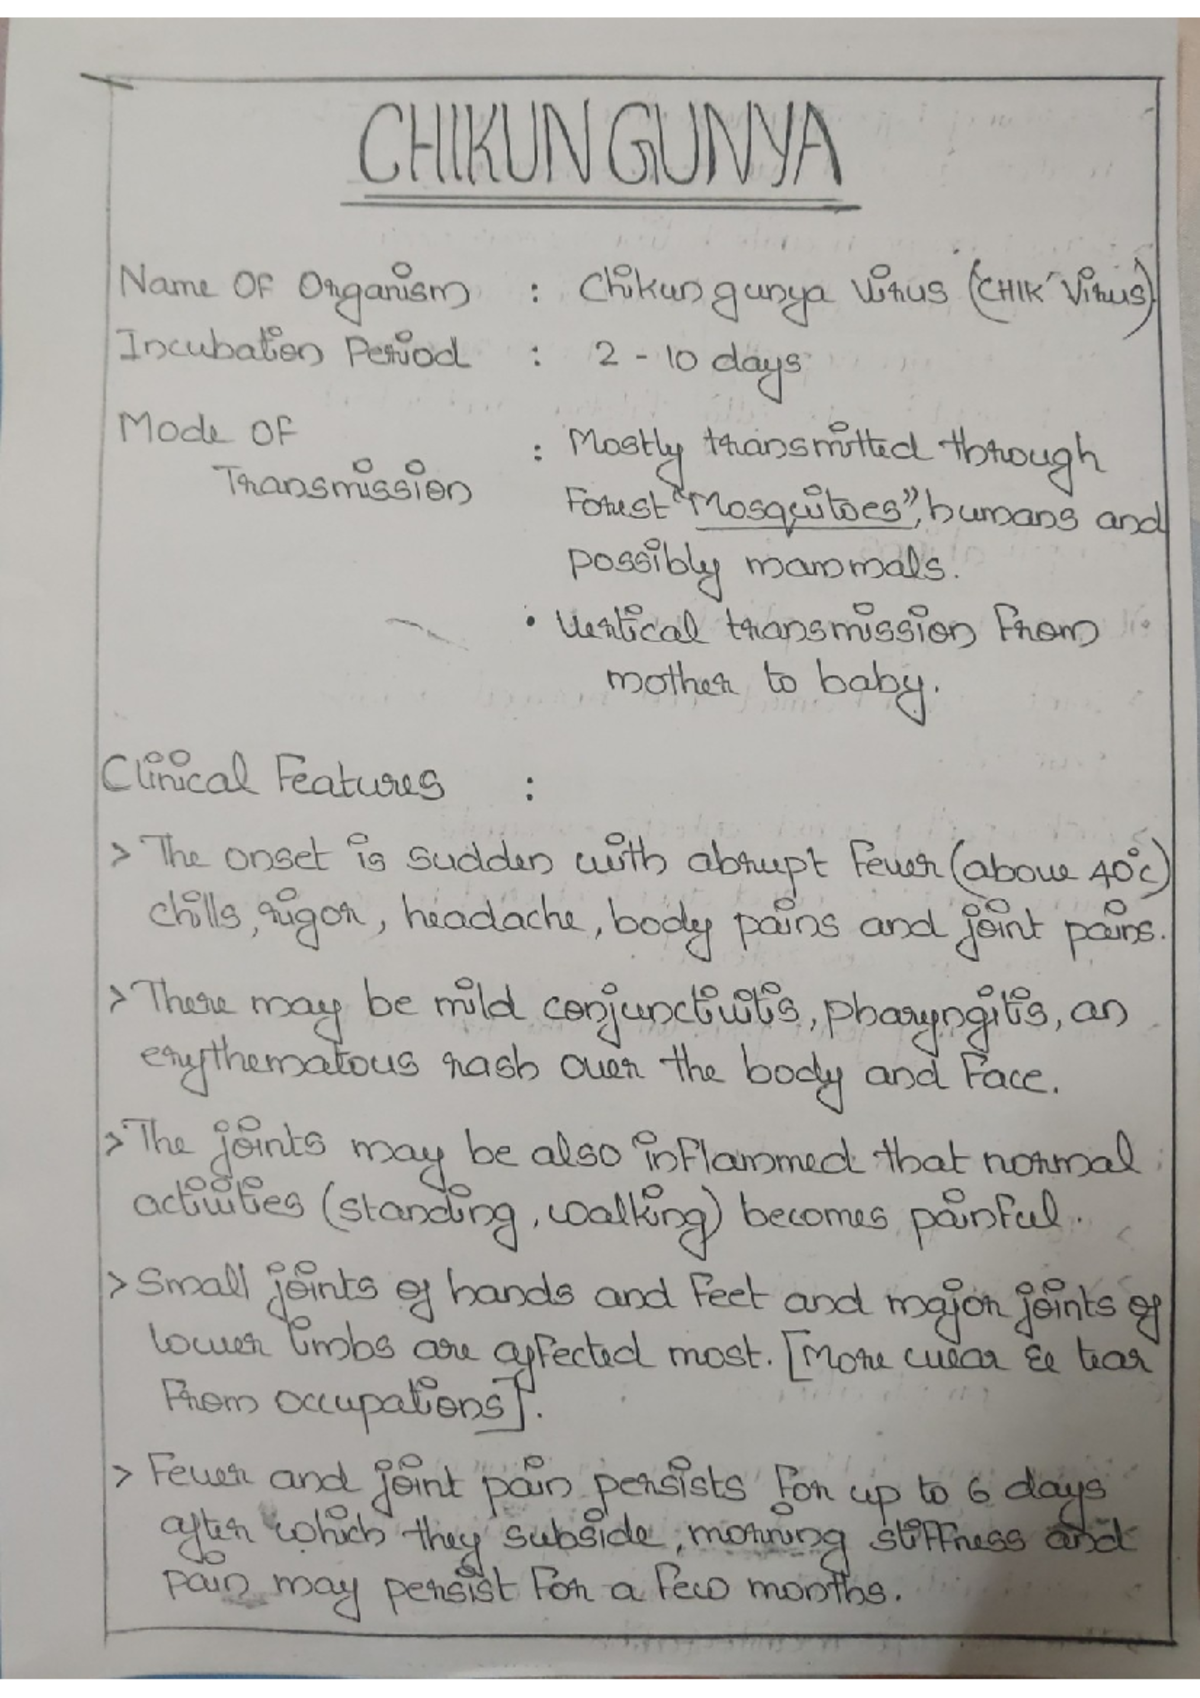 CHIKUNGUNYA
Name Of Organism : Chikungunya Virus (CHIK Virus)
Incubation Period : 2 - 10 days
Mode Of
Transmission
: Mostly transmitted through
Forest "Mosquitoes", humans and
possibly mammals.
• Vertical transmission From
mother to baby.
Clinical Features :
> The onset is sudden with abrupt Fever (above 40°c)
chills, rigor, headache, body pains and joint pains.
> There may be mild conjunctivitis, pharyngitis, an
erythematous rash over the body and Face.
> The joints may be also inflammed that normal
activities (standing, walking) becomes painful.
> Small joints of hands and Feet and major joints of
lower limbs are affected most. [More wear & tear
From occupations].
> Fever and joint pain persists For up to 6 days
after which they subside, morning stiffness and
pain may persist For a Few months.